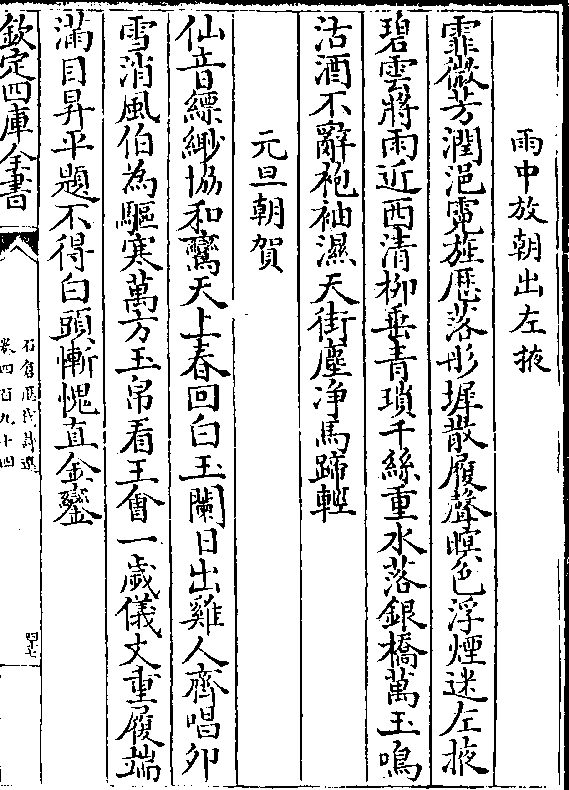 雨中放朝出左掖
霏微芳潤浥霓旌歴落彤墀散履聲暝色浮煙迷左掖
碧雲將雨近西清柳垂青瑣千絲重水落銀橋萬玉鳴
沽酒不辭袍袖濕天街塵净馬蹄輕
元旦朝賀
仙音縹緲協和鸞天上春回白玉闌日出雞人齊唱卯
雪消風伯為驅寒萬方玉帛看王會一歲儀文重履端
滿目昇平題不得白頭慚愧直金鑾
欽定四庫全書
石倉歴代詩選
卷四百九十四